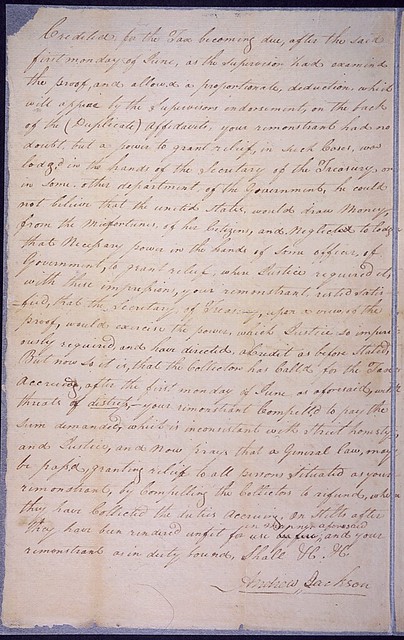 Credited, for the Tax becoming due, after the said
first monday of June, as the Supervisor had examined
the proof, and allowed a proportionate, deduction, which
will appear by the Supervisors endorsement, on the back
of the (Duplicate) Affidavits, your remonstrant had no
doubt, but a power to grant relief, in such Cases, was
lodged in the hands of the Secretary of the Treasury, or
in Some other department, of the Government, he could
not believe that the united States, would draw Money,
from the Misfortunes, of her Citizens, and Neglected to lodge
that Necessary power in the hands of Some officer, of
Government, to grant relief, when Justice required it,
with these impressions, your remonstrant, rested satis
fied, that the Secretary, of Treasy, upon a view of the
proof, would exercise the power, which Justice so imperi
ously required and have directed, a Credit as before Stated,
But now so it is, that the Collector has Called for the Tax
accruing, after the first monday of June as aforesaid, with
threats of distress, your remonstrant Compelled to pay the
Sum demanded, which is inconsistant with Strict honesty,
and Justice, and now prays that a General Law, may
be pass'd, granting relief to all persons Situated as your
remonstrant, by Compelling the Collectors to refund, when
they have Collected the duties Accruing, on Stills after
they have been rendered unfit for use in manner aforesaid
and your
remonstrant as in duty bound, Shall &c. &c.
Andrew Jackson